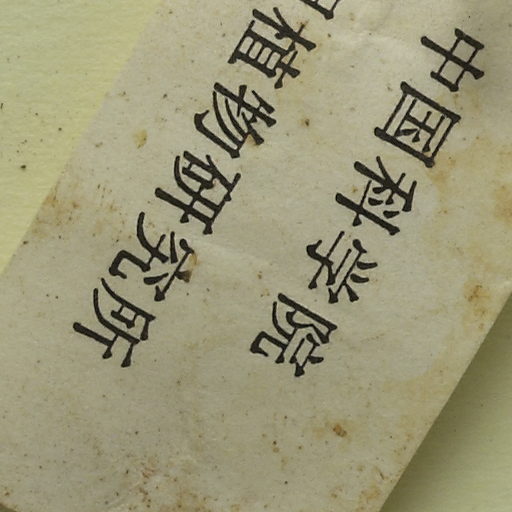 中国科学院
植物研究所